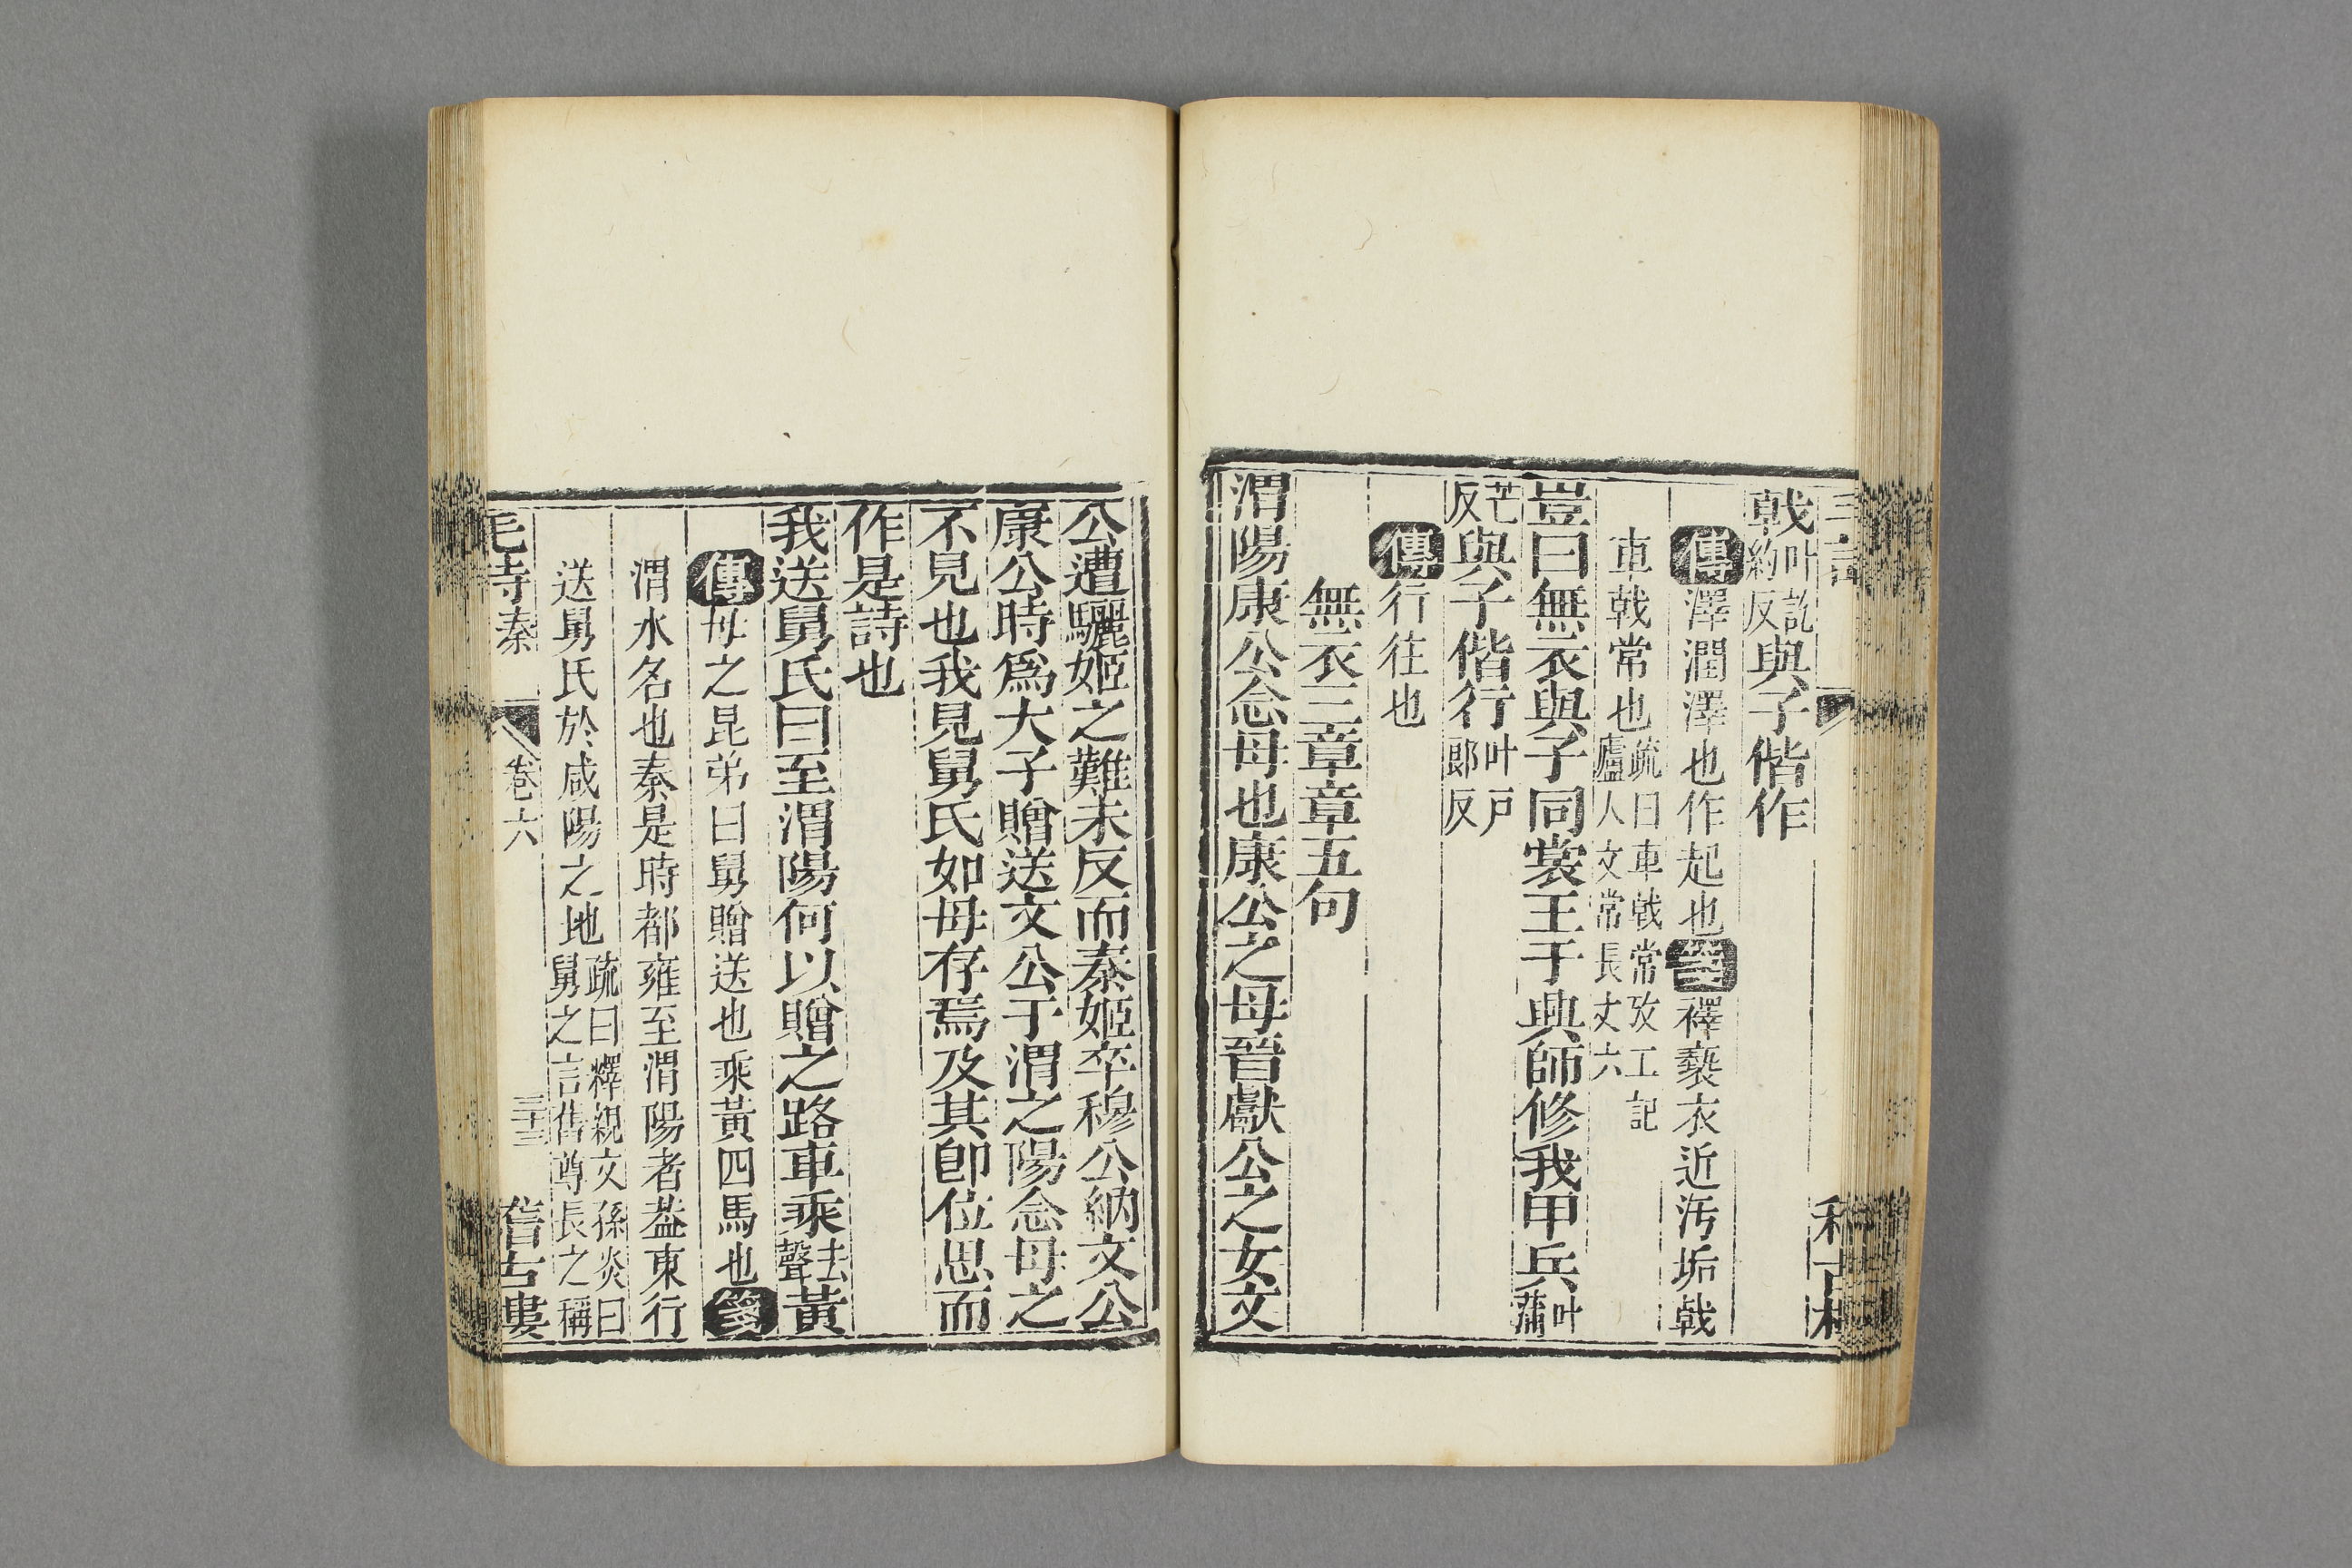 戟叶訖約反與子偕作
傳澤潤澤也作起也箋襗褻衣近汚垢戟
車戟常也疏曰車戟常攷工記廬人文常長丈六
豈曰無衣與子同裳王于興師修我甲兵叶蒲
芒反與子偕行叶戸郎反
傳行往也
無衣三章章五句
渭陽康公念母也康公之母晉獻公之女文
公遭驪姬之難未反而秦姬卒穆公納文公
康公時爲大子贈送文公于渭之陽念母之
不見也我見舅氏如母存焉及其卽位思而
作是詩也
我送舅氏曰至渭陽何以贈之路車乘去聲黃
傳母之昆弟曰舅贈送也乘黃四馬也箋
渭水名也秦是時都雍至渭陽者葢東行
送舅氏於咸陽之地疏曰釋親文孫炎曰舅之言舊尊長之稱
毛詩秦 卷六 三十三 稽古樓